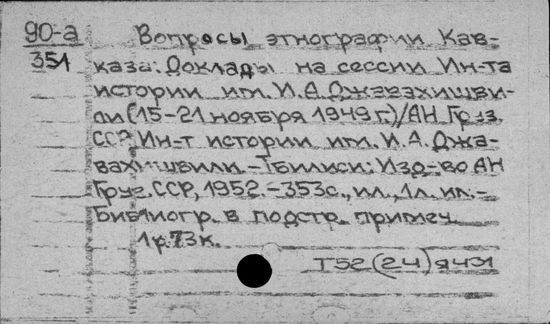 90-а
351
Вопросы этнографии Кав-
каза: Доклады на сессии Ин-та
истории им. И.А.Джавахишви-
ли (15-21 ноября 1949 г.)/АН Груз.
ССР, Ин-т истории им. И.А.Джа-
вахишвили.-Тбилиси: Изд-во АН
Груз.ССР, 1952.-353с., ил., 1л. ил.-
Библиогр. в подстр. примеч.
1р.73к.
Т52(24)я431